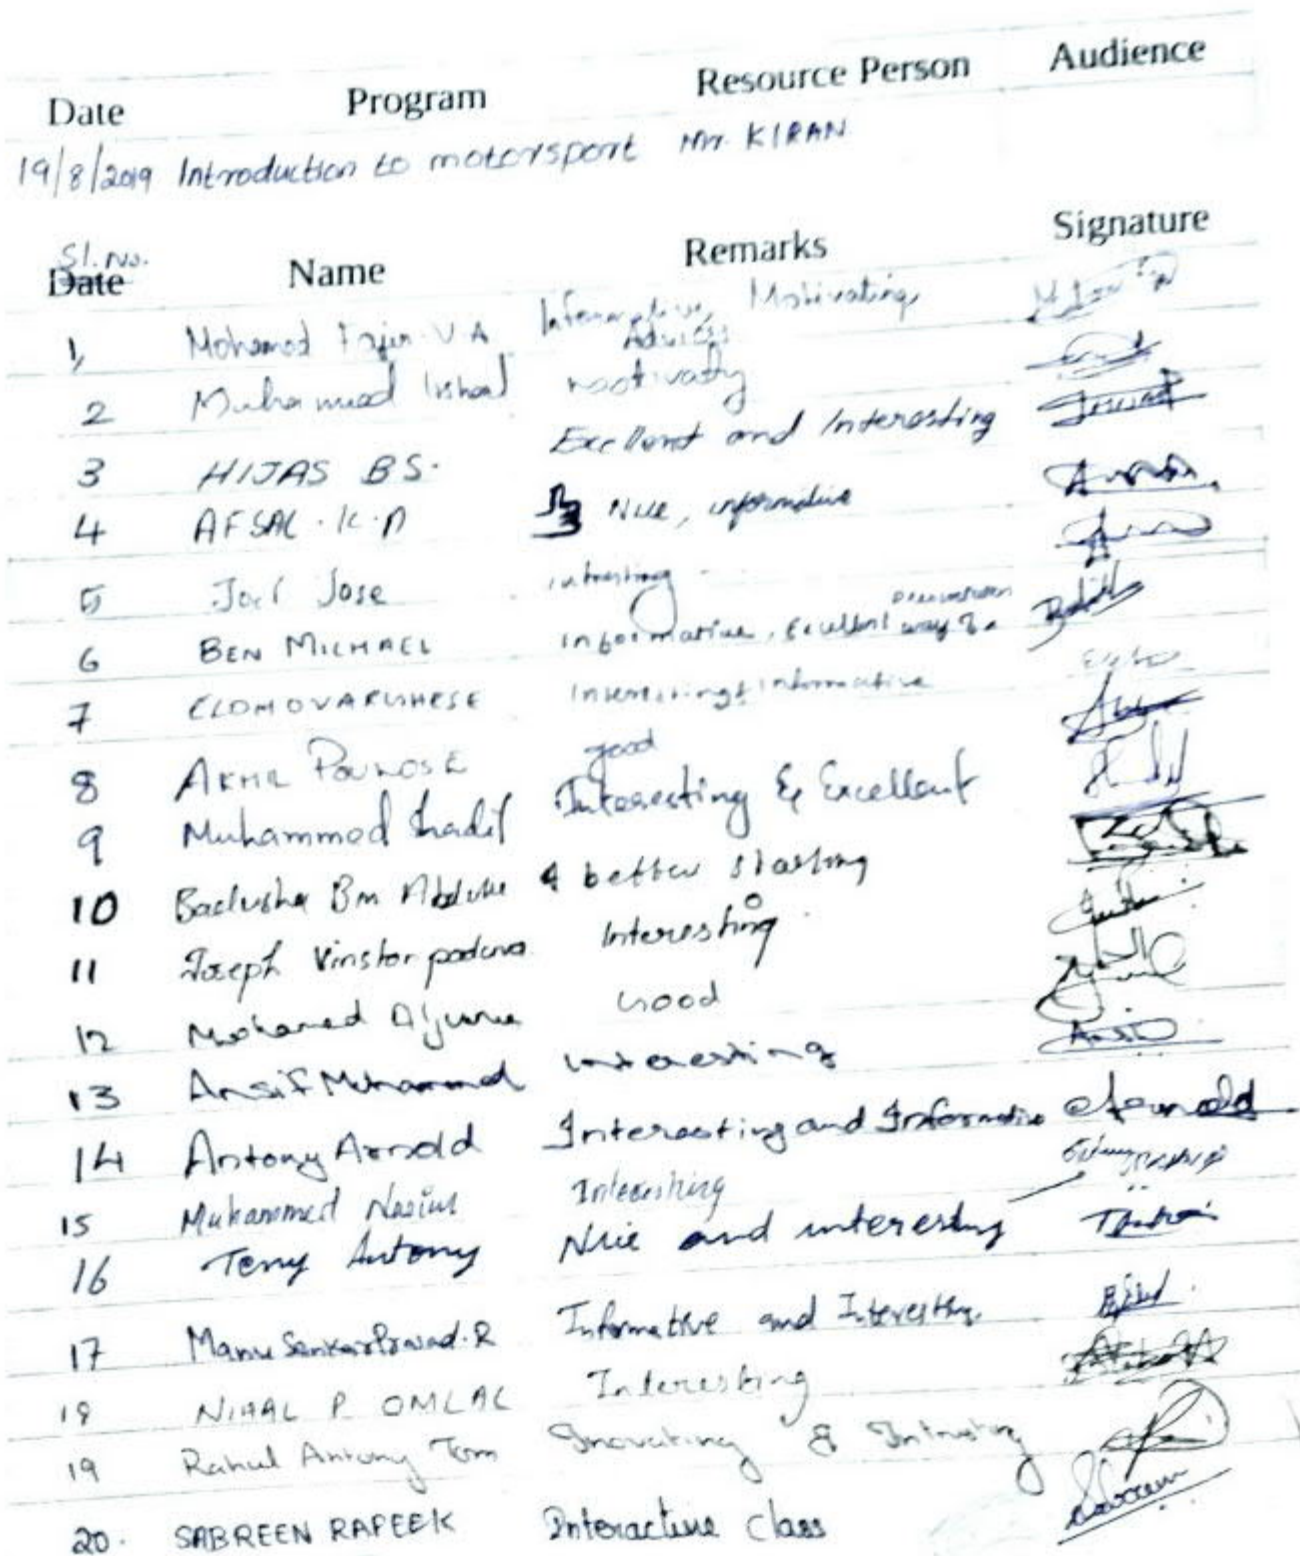 Date Program Resource Person Audience
19/8/2019 Introduction to motorsport Mr. KIRAN
Sl. No.
Date Name Remarks Signature
1, Mohamed V.A Informative, Motivating,
Advices
2 Muhammed Irshad
3 HIJAS BS. Excellent and Interesting
4 AFSAL. K. A Nice, informative
5 Joel Jose intresting
6 BEN MICHAEL Informative, Excellent way
7 Interesting & informative
8 AKHIL POUNOSE good
9 Muhammed Shadil Interesting & Excellent
10 Badusha Bm better starting
11 Joseph Vinston Interesting
12 Mohamed Good
13 Ansif Muhammed interesting
14 Antony Arnold Interesting and Informative Arnold
15 Muhammed Interesting
16 Tony Antony Nice and interesting
17 Manu Sankar Prasad. R Informative and Interesting.
18 NIHAL P OMLAL Interesting
19 Rahul Antony Tom Inovating & Intresting
20. SABREEN RAFEEK Interactive class Sabreen